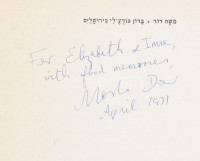 משה דור · ברוש פורצלי בירושלים
For Elizabeth & Imre,
with fond memories,
Moshe Dor
April 1971